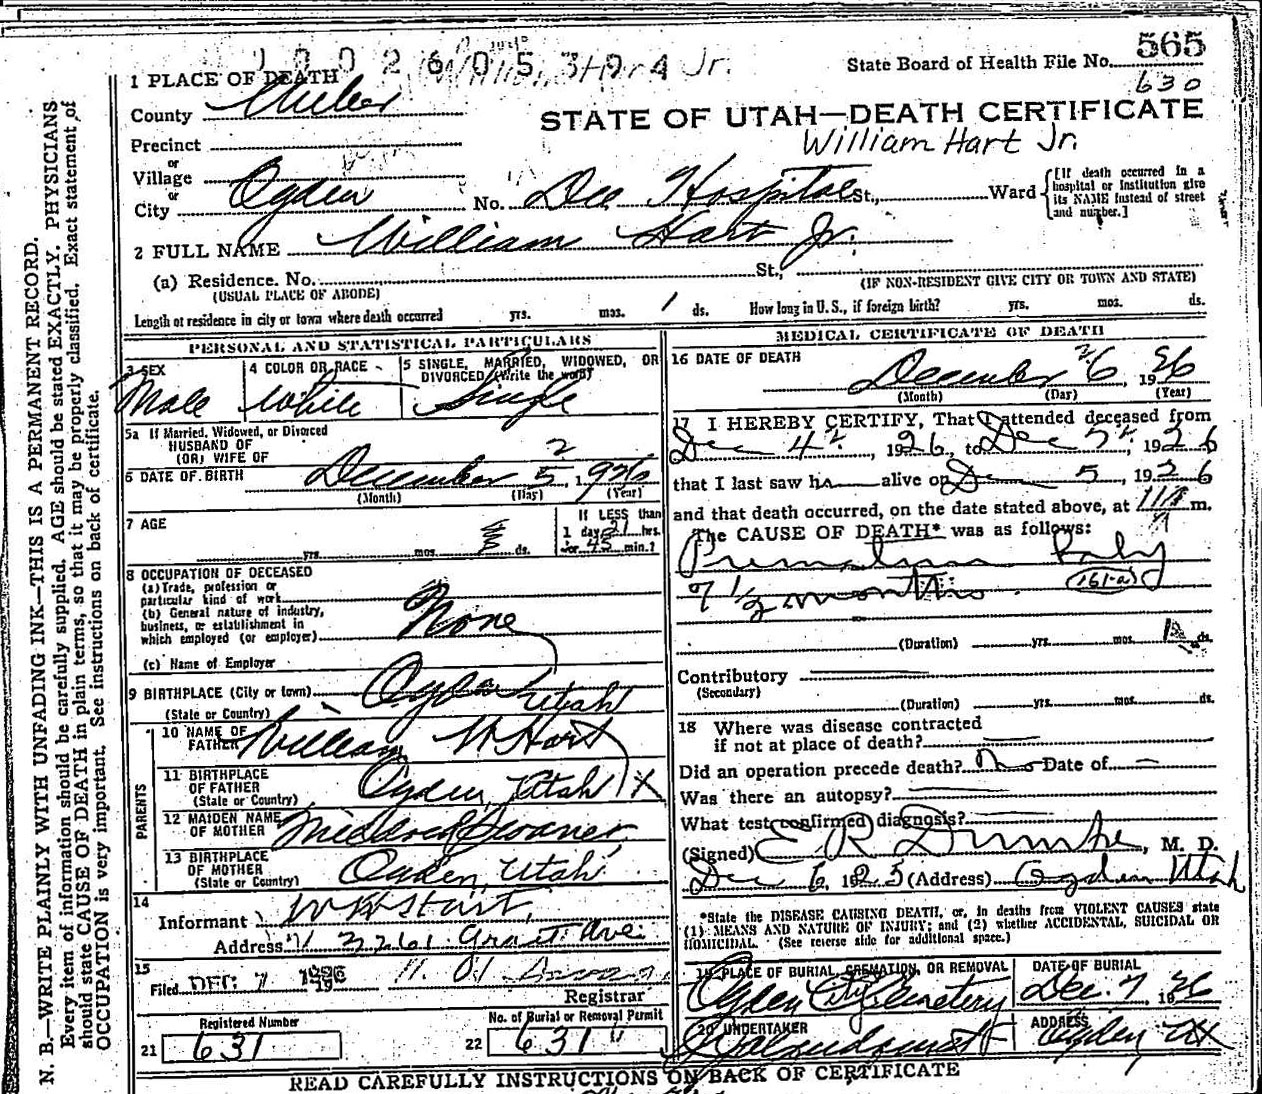 1002605394 William Hart Jr.
State Board of Health File No. 565
630
1 PLACE OF DEATH
County Weber
STATE OF UTAH—DEATH CERTIFICATE
William Hart Jr.
Precinct
or
Village
or
City Ogden No. Dee Hospital St., Ward
[If death occurred in a hospital or institution give its NAME instead of street and number.]
2 FULL NAME William Hart Jr.
(a) Residence. No. St.,
(USUAL PLACE OF ABODE) (IF NON-RESIDENT GIVE CITY OR TOWN AND STATE)
Length of residence in city or town where death occurred yrs. mos. 1 ds. How long in U.S., if foreign birth? yrs. mos. ds.
PERSONAL AND STATISTICAL PARTICULARS
3 SEX Male
4 COLOR OR RACE White
5 SINGLE, MARRIED, WIDOWED, OR DIVORCED (Write the word) Single
5a If Married, Widowed, or Divorced
HUSBAND OF
(OR) WIFE OF
6 DATE OF BIRTH December 5 1926
(Month) (Day) (Year)
7 AGE yrs. mos. ds.
If LESS than
1 day 21 hrs.
or 45 min.?
8 OCCUPATION OF DECEASED
(a) Trade, profession or
particular kind of work
(b) General nature of industry,
business, or establishment in
which employed (or employer) None
(c) Name of Employer
9 BIRTHPLACE (City or town) Ogden
(State or Country) Utah
PARENTS
10 NAME OF FATHER William W Hart
11 BIRTHPLACE OF FATHER (State or Country) Ogden, Utah X
12 MAIDEN NAME OF MOTHER Mildred
13 BIRTHPLACE OF MOTHER (State or Country) Ogden, Utah
14
Informant W W Hart
Address 3261 Grant Ave.
15
Filed DEC 7 1926
Registrar
Registered Number
21 631
No. of Burial or Removal Permit
22 631
MEDICAL CERTIFICATE OF DEATH
16 DATE OF DEATH
December 6, 1926
(Month) (Day) (Year)
17 I HEREBY CERTIFY, That I attended deceased from
Dec 4, 1926, to Dec 5, 1926
that I last saw h alive on Dec 5, 1926
and that death occurred, on the date stated above, at m.
The CAUSE OF DEATH* was as follows:
Premature Baby
7 1/2 months 161-a
(Duration) yrs. mos. ds.
Contributory
(Secondary)
(Duration) yrs. mos. ds.
18 Where was disease contracted
if not at place of death?
Did an operation precede death? No Date of
Was there an autopsy?
What test confirmed diagnosis?
(Signed) E R Dumke, M. D.
Dec 6, 1925 (Address) Ogden Utah
*State the DISEASE CAUSING DEATH, or, in deaths from VIOLENT CAUSES state
(1) MEANS AND NATURE OF INJURY; and (2) whether ACCIDENTAL, SUICIDAL OR
HOMICIDAL. (See reverse side for additional space.)
19 PLACE OF BURIAL, CREMATION, OR REMOVAL
Ogden City Cemetery
DATE OF BURIAL
Dec. 7, 1926
20 UNDERTAKER
ADDRESS
Ogden, Ut
READ CAREFULLY INSTRUCTIONS ON BACK OF CERTIFICATE
N. B.—WRITE PLAINLY WITH UNFADING INK—THIS IS A PERMANENT RECORD.
Every item of information should be carefully supplied. AGE should be stated EXACTLY. PHYSICIANS
should state CAUSE OF DEATH in plain terms, so that it may be properly classified. Exact statement of
OCCUPATION is very important. See instructions on back of certificate.